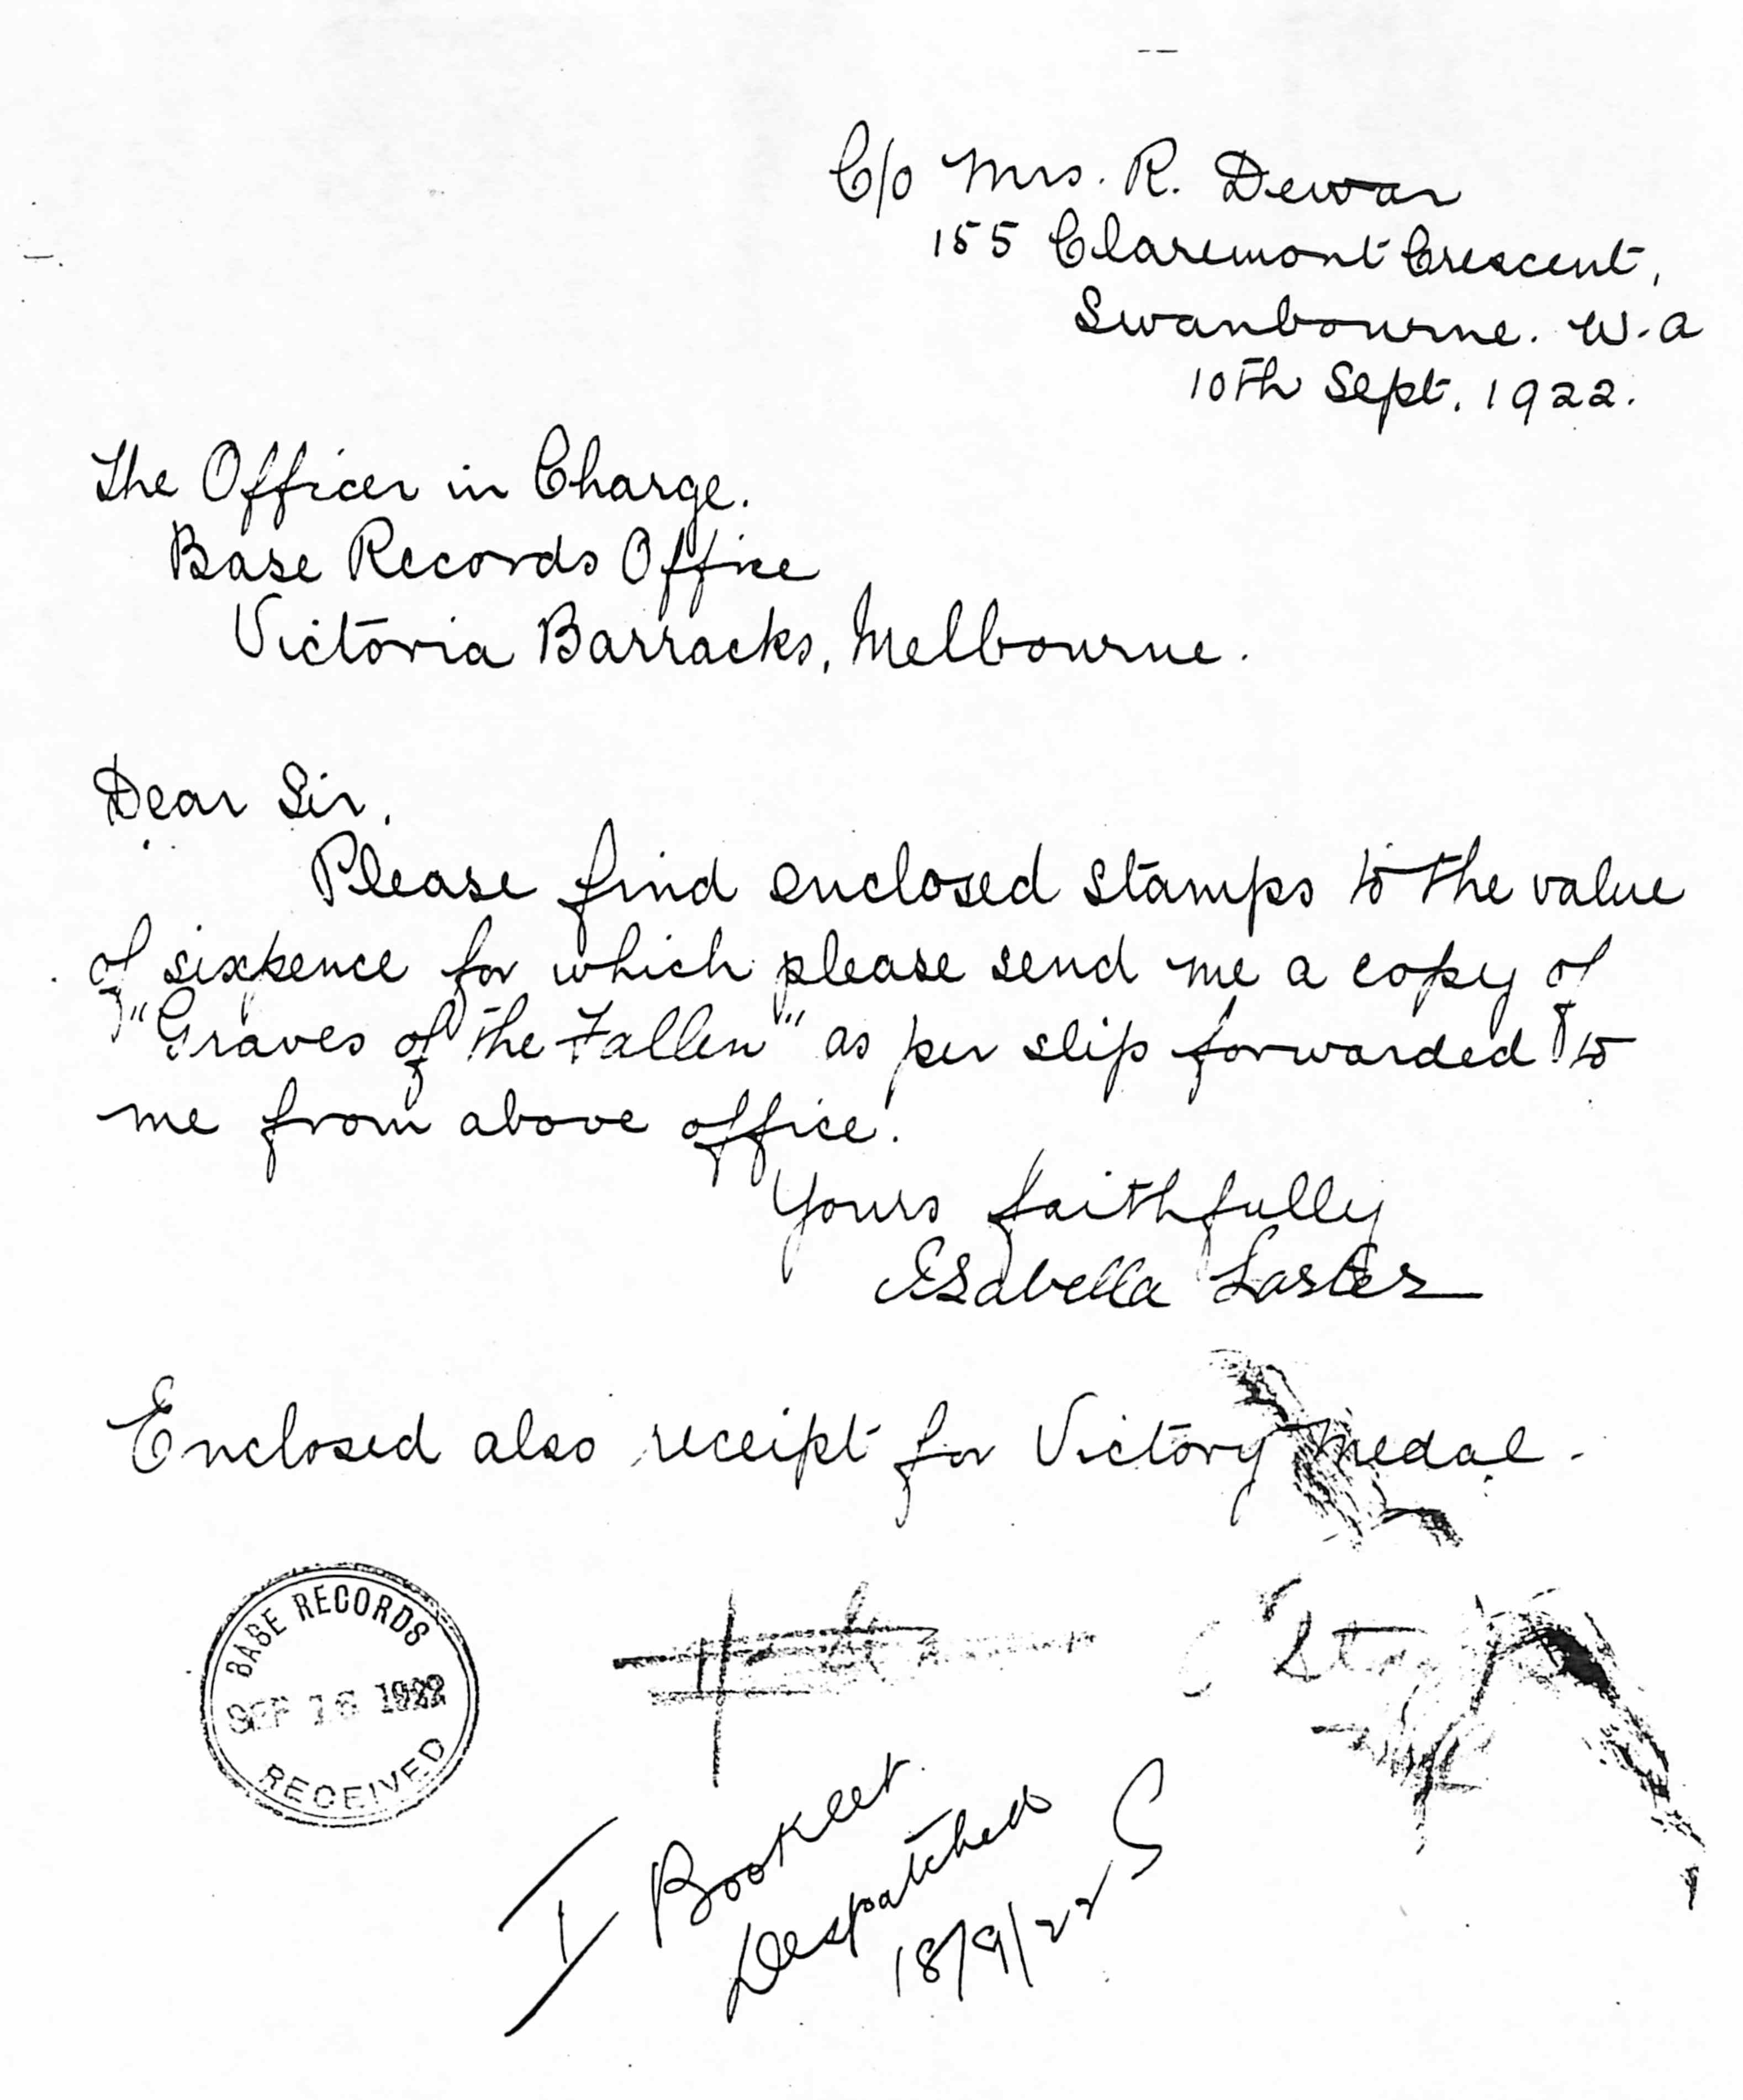 C/o Mrs. R. Dewar
155 Claremont Crescent,
Swanbourne. W.A
10th Sept. 1922.
The Officer in Charge.
Base Records Office
Victoria Barracks, Melbourne.
Dear Sir,
Please find enclosed stamps to the value
of sixpence for which please send me a copy of
"Graves of the Fallen" as per slip forwarded to
me from above office.
Yours faithfully
Isabella
Enclosed also receipt for Victory Medal.
BASE RECORDS
SEP 16 1922
RECEIVED
I Booklet
Despatched
18/9/22